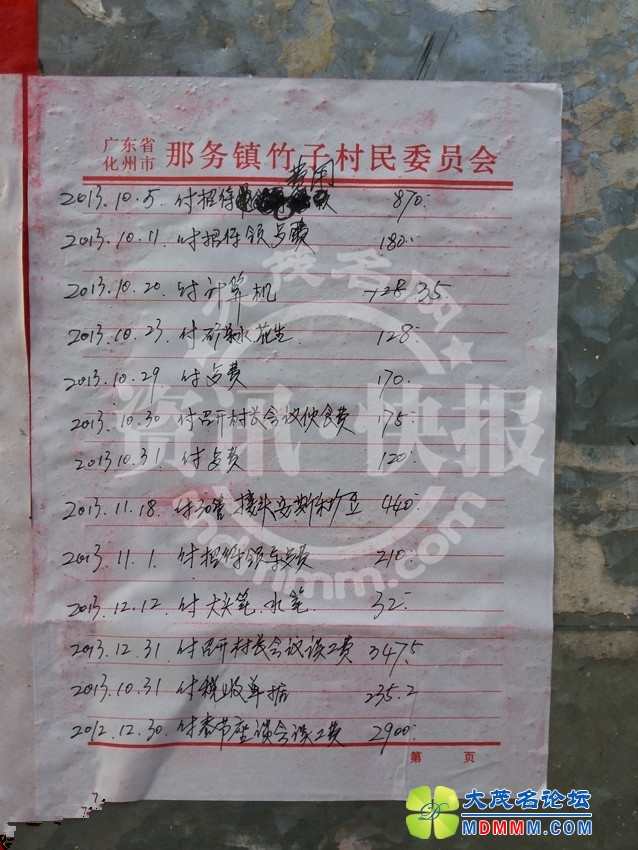 广东省
化州市 那务镇竹子村民委员会
费用
2013.10.5. 付招待 870.
2013.10.11. 付招待领导费 180.
2013.10.20. 付计算机 35
2013.10.23. 付矿泉水花生 128.
2013.10.29 付电费 170.
2013.10.30 付召开村长会议伙食费 175.
2013.10.31 付电费 120.
2013.11.18. 付 接头 440.
2013.11.1. 付招待领导费 210.
2013.12.12. 付大头笔.水笔. 32.
2013.12.31 付召开村长会议误工费 3475
2013.10.31 付税收单据 235.2
2012.12.30. 付春节座谈会误工费 2900.
第 页
大茂名网
资讯·快报
mdmmm.com
大茂名论坛
MDMMM.COM